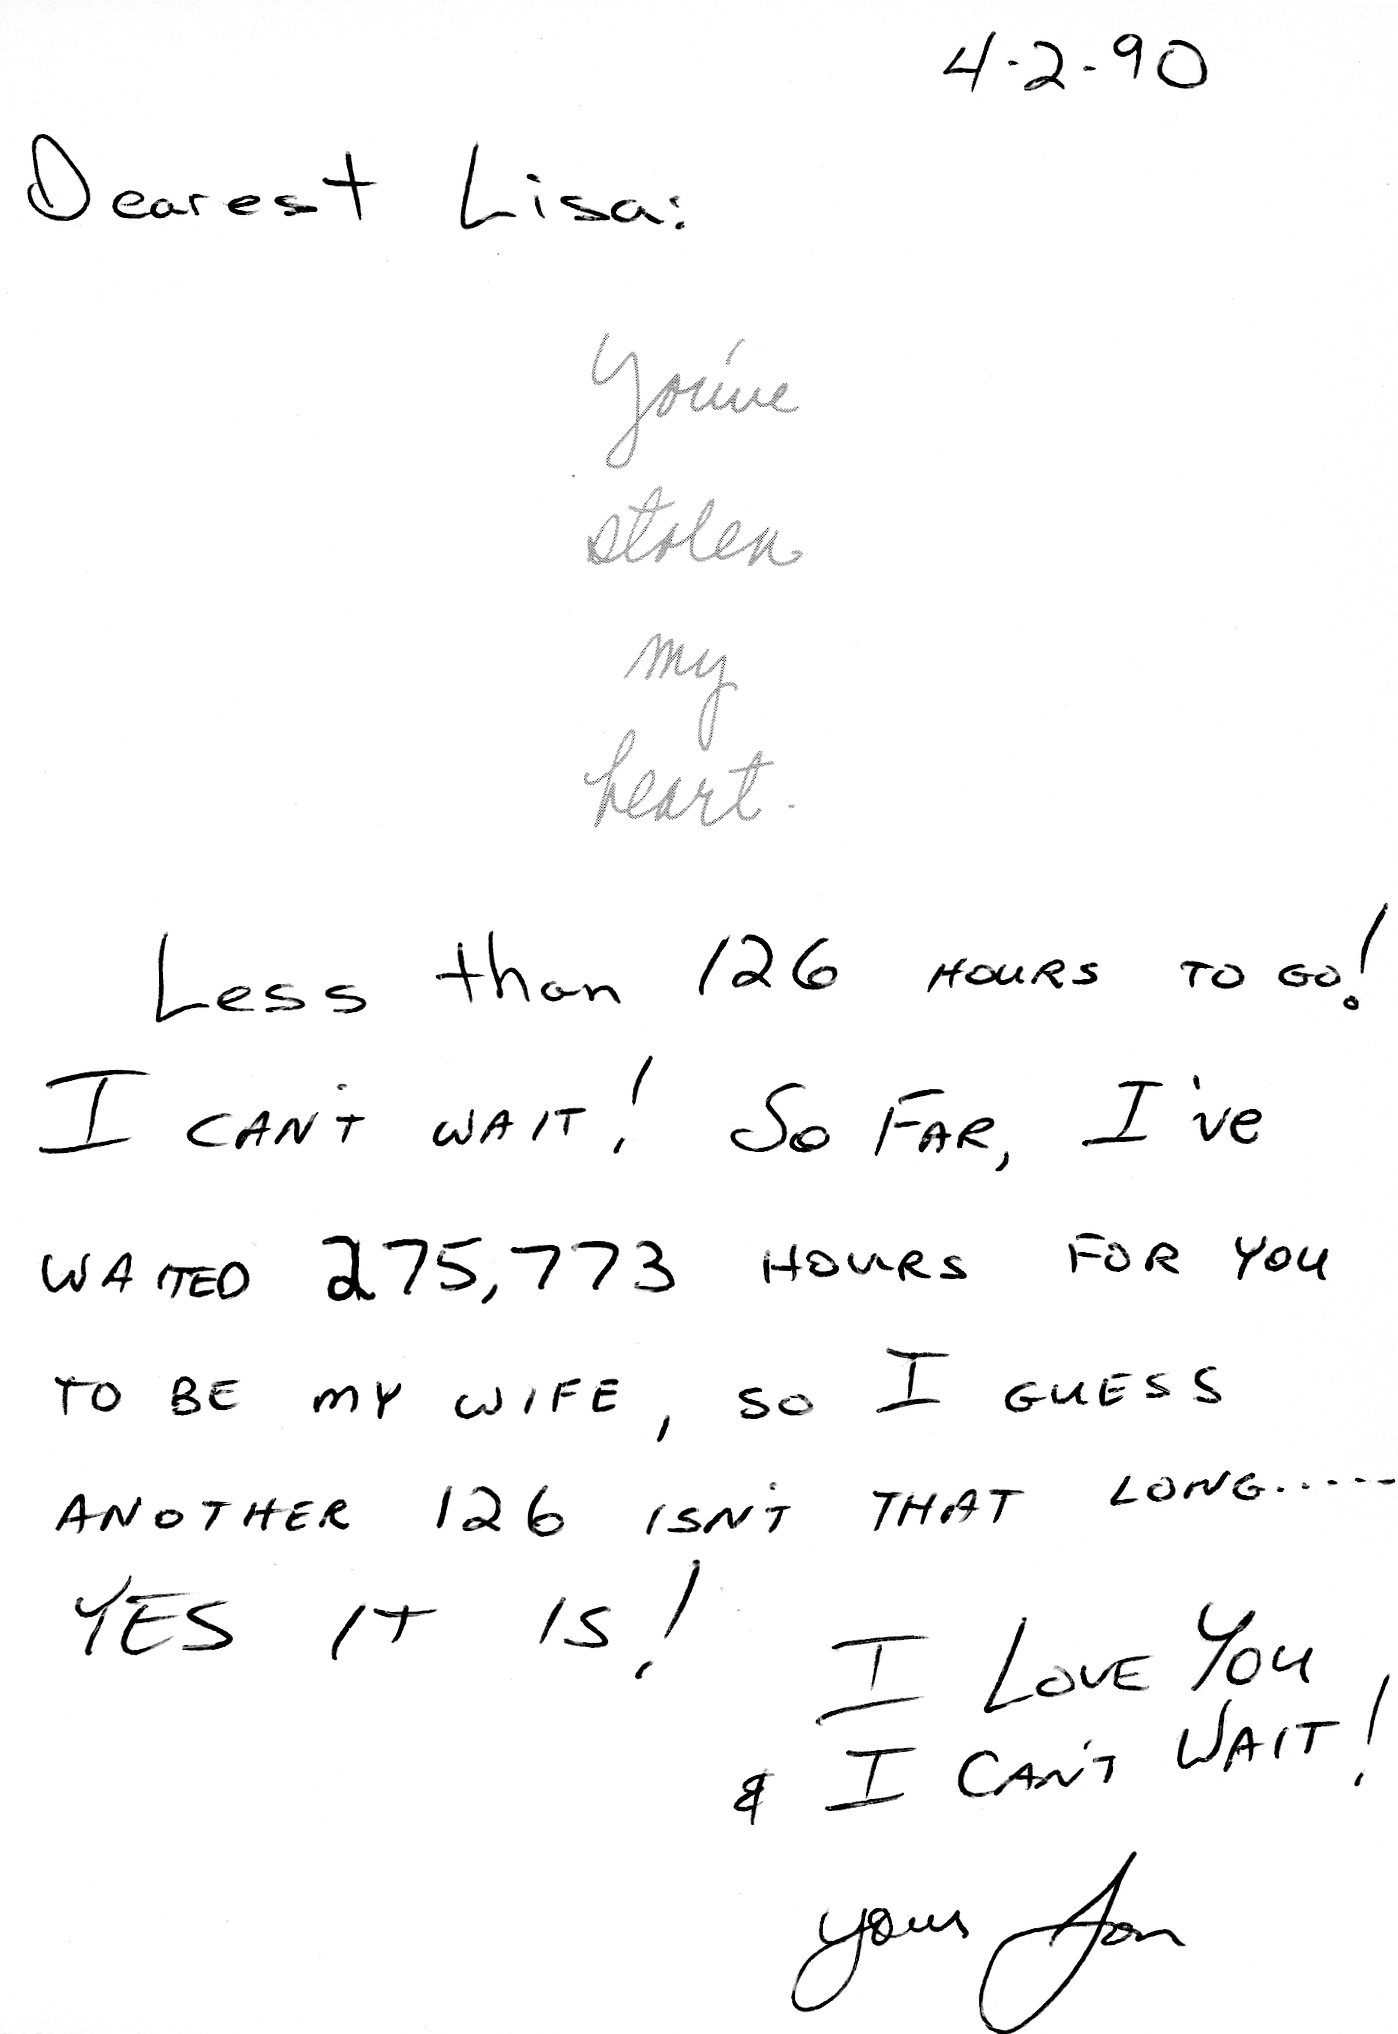 4-2-90
Dearest Lisa:
You've
stolen
my
heart.
Less than 126 HOURS TO GO!
I CAN'T WAIT! SO FAR, I've
WAITED 275,773 HOURS FOR YOU
TO BE MY WIFE, SO I GUESS
ANOTHER 126 ISN'T THAT LONG......
YES IT IS!
I LOVE YOU
& I CAN'T WAIT!
your Jon